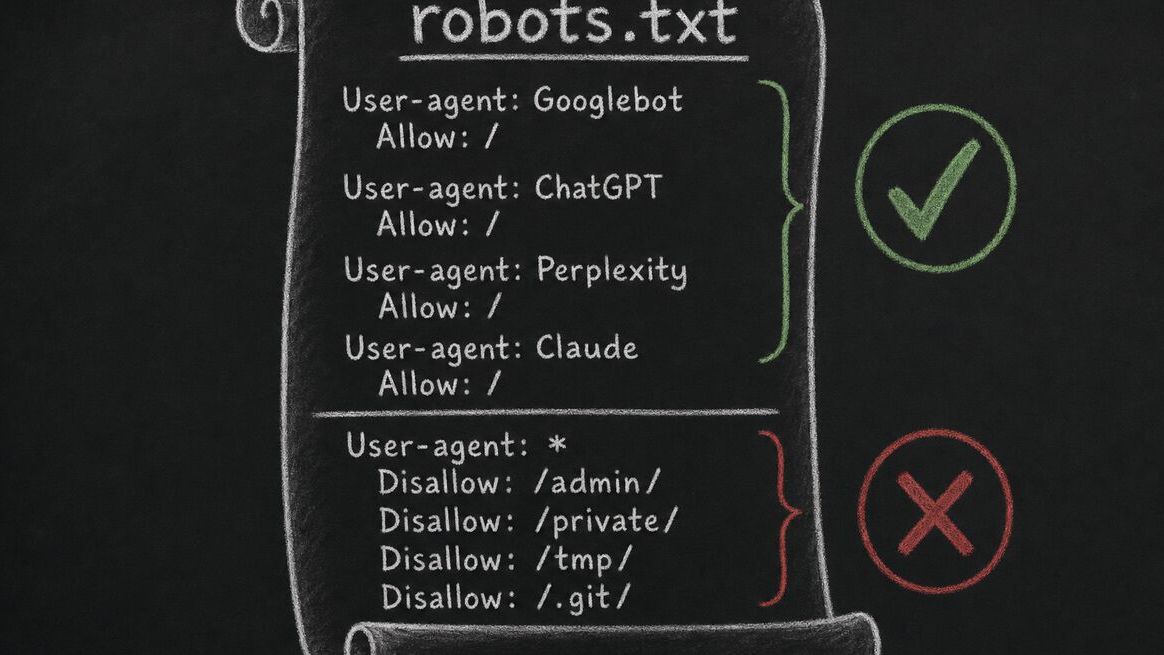 robots.txt
User-agent: Googlebot
Allow: /
User-agent: ChatGPT
Allow: /
User-agent: Perplexity
Allow: /
User-agent: Claude
Allow: /
User-agent: *
Disallow: /admin/
Disallow: /private/
Disallow: /tmp/
Disallow: /.git/